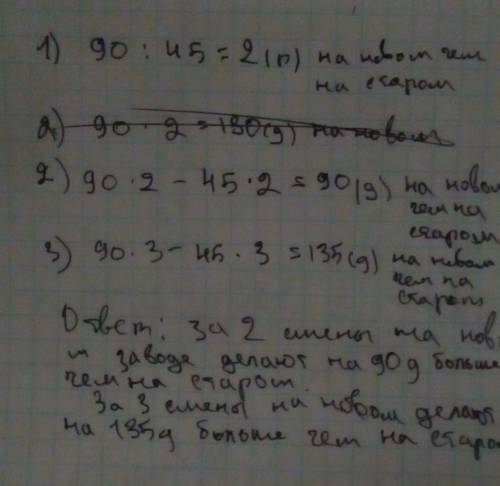 1) 90 : 45 = 2 (п) на новом чем
на старом
2) 90 · 2 = 180 (д) на новом
2) 90 · 2 - 45 · 2 = 90 (д) на новом
чем на
старом
3) 90 · 3 - 45 · 3 = 135 (д) на новом
чем на
старом
Ответ: за 2 смены на нов
м заводе делают на 90 д больше
чем на старом.
За 3 смены на новом делают
на 135 д больше чем на старо